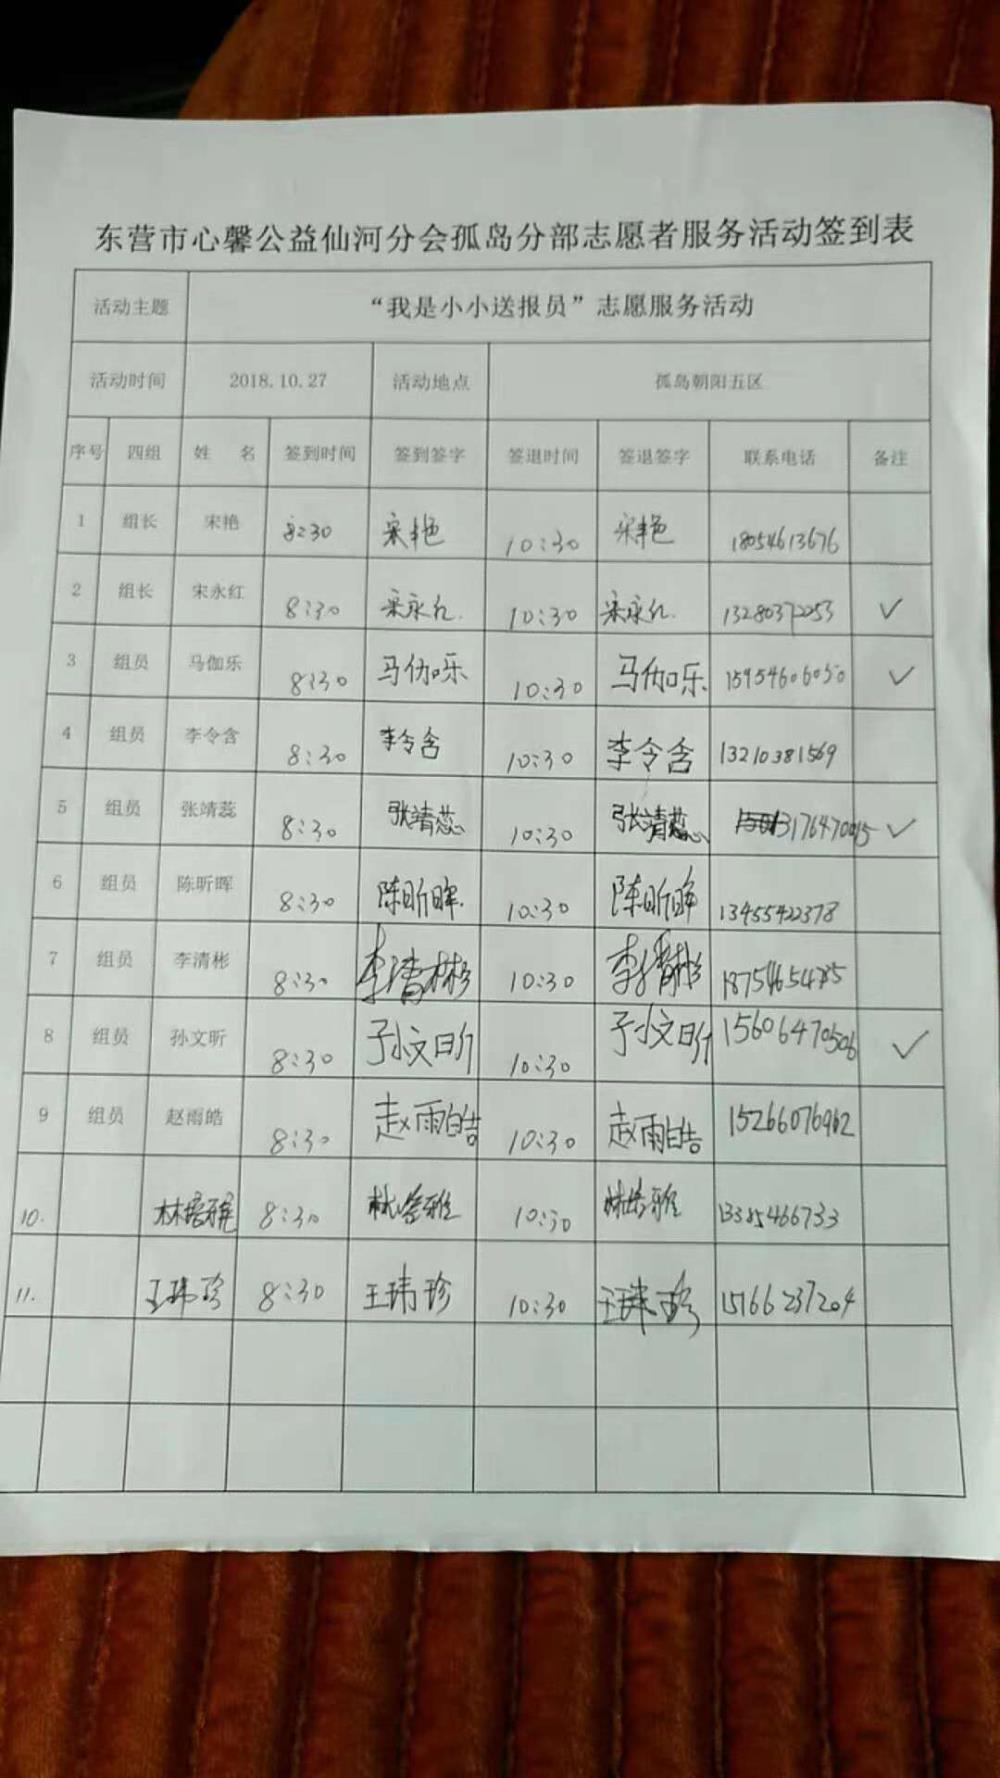 东营市心馨公益仙河分会孤岛分部志愿者服务活动签到表
活动主题 “我是小小送报员”志愿服务活动
活动时间 2018.10.27 活动地点 孤岛朝阳五区
序号 四组 姓 名 签到时间 签到签字 签退时间 签退签字 联系电话 备注
1 组长 宋艳 8:30 宋艳 10:30 宋艳 18054613676
2 组长 宋永红 8:30 宋永红. 10:30 宋永红. 13280372053 ✓
3 组员 马伽乐 8:30 马伽乐 10:30 马伽乐 15954606050 ✓
4 组员 李令含 8:30 李令含 10:30 李令含 13210381569
5 组员 张靖蕊 8:30 张靖蕊 10:30 张靖蕊 ✓
6 组员 陈昕晖 8:30 陈昕晖. 10:30 陈昕晖 13455422378
7 组员 李清彬 8:30 李清彬 10:30 李清彬
8 组员 孙文昕 8:30 孙文昕 10:30 孙文昕 15606470506 ✓
9 组员 赵雨皓 8:30 赵雨皓 10:30 赵雨皓 15266076962
10. 8:30 10:30 13385466733
11. 王玮珍 8:30 王玮珍 10:30 王玮珍 15166237204